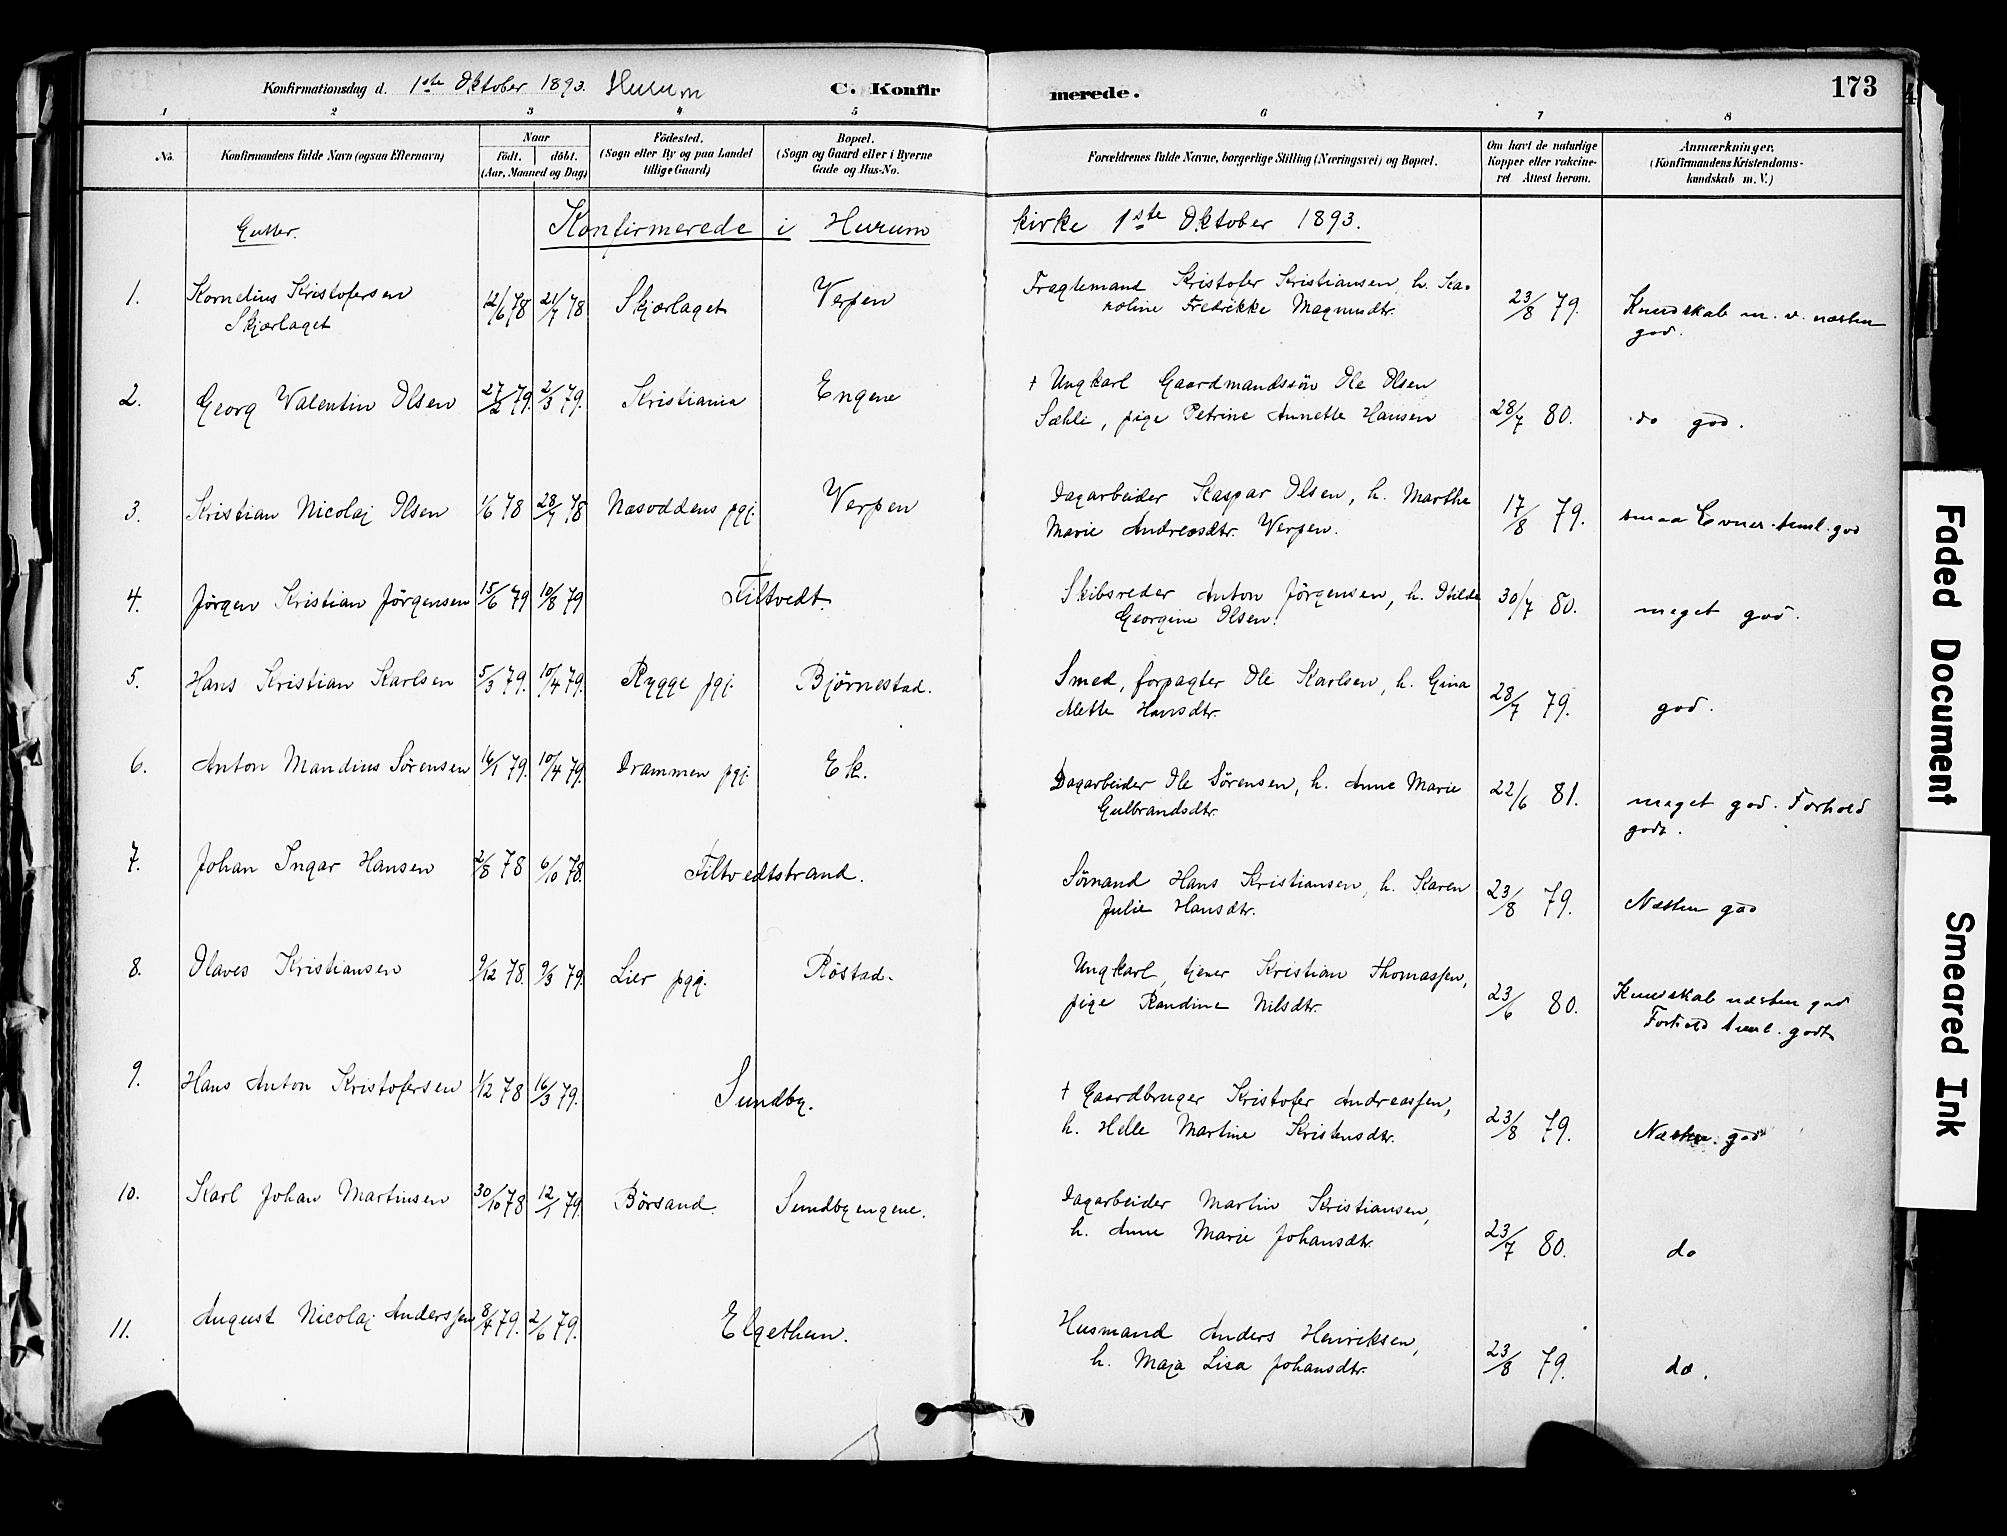 Konfirmationsdag d. 1ste Oktober 1893. Hurum
C. Konfirmerede.
173
1 2 3 4 5 6 7 8
No.
Konfirmandens fulde Navn (ogsaa Efternavn)
Naar
födt. döbt.
(Aar, Maaned og Dag)
Födested.
(Sogn eller By og paa Landet
tillige Gaard)
Bopæl.
(Sogn og Gaard eller i Byerne
Gade og Hus-No.
Forældrenes fulde Navne, borgerlige Stilling (Næringsvei) og Bopæl.
Om havt de naturlige
Kopper eller vakcine-
ret Attest herom.
Anmærkninger.
(Konfirmandens Kristendoms-
kundskab m. V.)
Gutter. Konfirmerede i Hurum kirke 1ste Oktober 1893.
1. Kornelius Kristofersen 12/6 78 21/7 78 Skjærlaget Verpen Fragtemand Kristofer Kristiansen, h. Ka- 23/8 79. Kundskab m. v. næsten
Skjærlaget roline Fredrikke Magnusdtr. god.
2. Georg Valentin Olsen 27/2 79. 2/3 79. Kristiania Engene † Ungkarl Gaardmandssön Ole Olsen
Sæhle, pige Petrine Annette Hansen 28/7 80. do god.
3. Kristian Nicolaj Olsen 1/6 78 28/7 78 Næsoddens pgj. Verpen Dagarbeider Kaspar Olsen, h. Marthe 17/8 79. smaa Evner. teml. god
Marie Andreasdtr. Verpen.
4. Jørgen Kristian Jørgensen 15/6 79 10/8 79 Filtvedt. Skibsreder Anton Jörgensen, h. Otilde 30/7 80. meget god.
Georgine Olsen.
5. Hans Kristian Karlsen 5/3 79. 10/4 79. Rygge pgj. Bjørnestad. Smed, forpagter Ole Karlsen, h. Gina 28/7 79. god.
Mette Hansdtr.
6. Anton Mandius Sörensen 16/1 79. 10/4 79. Drammen pgj. Ek. Dagarbeider Ole Sörensen, h. Anne Marie 22/6 81. meget god. Forhold
Gulbrandsdtr. godt.
7. Johan Ingar Hansen 2/8 78 6/10 78. Filtvedtstrand. Sömand Hans Kristiansen, h. Karen 23/8 79. Næsten god
Julie Hansdtr.
8. Olaves Kristiansen 9/12 78. 9/3 79. Lier pgj. Röstad. Ungkarl, tjener Kristian Thomassen,
pige Randine Nilsdtr. 23/6 80. Kundskab næsten god
Forhold teml. godt
9. Hans Anton Kristofersen 1/12 78 16/3 79. Sundby. † Gaardbruger Kristofer Andreassen,
h. Helle Martine Kristensdtr. 23/8 79. Næsten god
10. Karl Johan Martinsen 30/10 78 12/1 79. Börsand. Sundbyengene. Dagarbeider Martin Kristiansen,
h. Anne Marie Johansdtr. 23/7 80. do
11. August Nicolaj Anderssen 8/4 79. 2/6 79. Elgethun. Husmand Anders Henriksen,
h. Maja Lisa Johansdtr. 23/8 79. do.
Faded Document
Smeared Ink